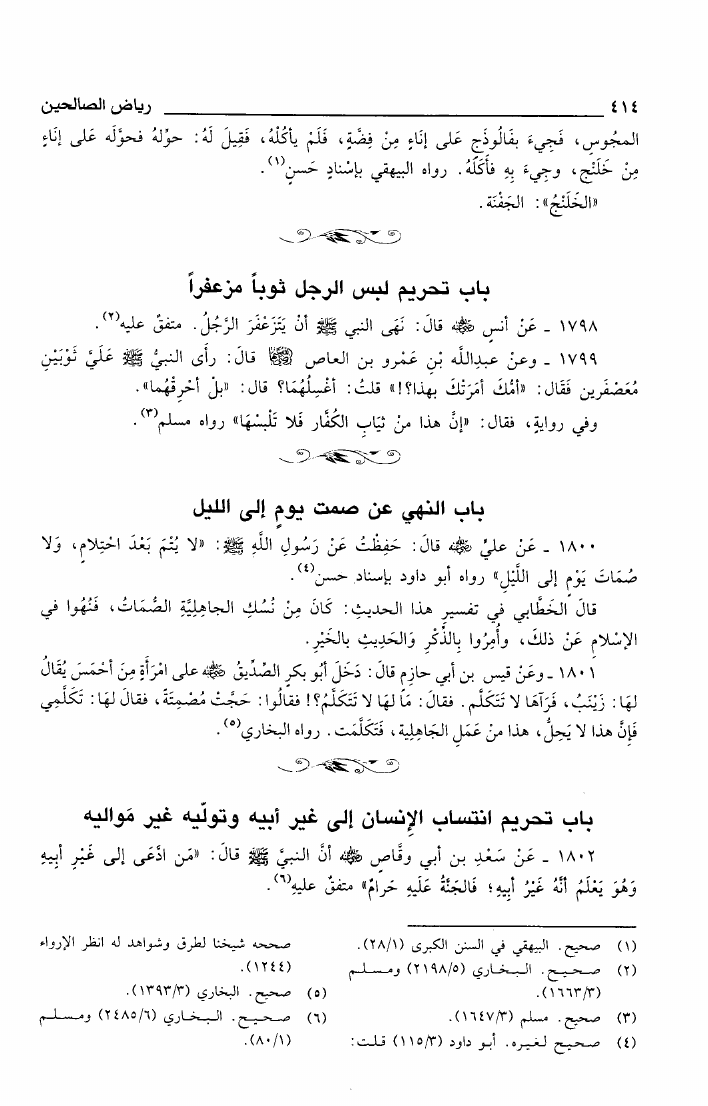 ٤١٤ رياض الصالحين
المجُوسِ، فَجِيءَ بفَالُوذَجٍ عَلى إنَاءٍ مِنْ فِضَّةٍ، فَلَمْ يأكُلْهُ، فَقِيلَ لَهُ: حوّلهُ فحوَّله عَلى إنَاءٍ
مِنْ خَلَنْجٍ، وجيءَ بِهِ فأكَلَهُ. رواه البيهقي بإسْنادٍ حَسنٍ(١).
«الخَلَنْجُ»: الجَفْنَة.
باب تحريم لبس الرجل ثوباً مزعفراً
١٧٩٨ ـ عَنْ أنسٍ رضي الله عنه قالَ: نَهَى النبي ﷺ أنْ يَتَزَعْفَرَ الرَّجُلُ. متفقٌ عليه(٢).
١٧٩٩ ـ وعنْ عبدِاللَّه بْنِ عَمْرو بن العاص رضي الله عنهما قالَ: رأى النبيُّ ﷺ عَلَيَّ ثَوْبَيْنِ
مُعَصْفَرين فَقَال: «أمُّكَ أمَرَتْكَ بهذا؟!» قلتُ: أغْسِلُهُمَا؟ قال: «بلْ أحْرِقْهُما».
وفي روايةٍ، فقال: «إنَّ هذا منْ ثيَابِ الكُفَّار فَلا تَلْبِسْهَا» رواه مسلم(٣).
باب النهي عن صمت يومٍ إلى الليل
١٨٠٠ ـ عَنْ عليٍّ رضي الله عنه قالَ: حَفِظْتُ عَنْ رَسُولِ اللَّهِ ﷺ: «لا يُتْمَ بَعْدَ احْتِلامٍ، وَلا
صُمَاتَ يَوْمٍ إلى اللَّيْلِ» رواه أبو داود بإسناد حسن(٤).
قالَ الخَطَّابي في تفسيرِ هذا الحديثِ: كَانَ مِنْ نُسُكِ الجاهِليَّةِ الصُّمَاتُ، فَنُهُوا في
الإسْلامِ عَنْ ذلكَ، وأُمِرُوا بِالذِّكْرِ وَالحَدِيثِ بالخَيْرِ.
١٨٠١ ـ وعَنْ قيسِ بن أبي حازِمٍ قالَ: دَخَلَ أبُو بكرٍ الصِّدِّيقُ رضي الله عنه على امْرَأةٍ مِنَ أحْمَسَ يُقَالُ
لهَا: زَيْنَبُ، فَرَآهَا لا تَتَكَلَّم. فقالَ: مَا لهَا لا تَتَكَلَّمُ؟! فقالُوا: حَجَّتْ مُصْمِتَةً، فقالَ لهَا: تَكَلَّمِي
فَإنَّ هذا لا يَحِلُّ، هذا منْ عَمَلِ الجَاهِلِية، فَتَكَلَّمَت. رواه البخاري(٥).
باب تحريم انتساب الإنسان إلى غير أبيه وتولّيه غير مَواليه
١٨٠٢ ـ عَنْ سَعْدِ بن أبي وقَّاصٍ رضي الله عنه أنَّ النبيَّ ﷺ قالَ: «مَن ادَّعَى إلى غَيْرِ أبِيهِ
وَهُوَ يَعْلَمُ أنَّهُ غَيْرُ أبِيهِ؛ فَالجَنَّةُ عَلَيهِ حَرامٌ» متفقٌ عليهِ(٦).
(١) صحيح. البيهقي في السنن الكبرى (٢٨/١).
(٢) صحيح. البخاري (٢١٩٨/٥) ومسلم
(١٦٦٣/٣).
(٣) صحيح. مسلم (١٦٤٧/٣).
(٤) صحيح لغيره. أبو داود (١١٥/٣) قلت:
صححه شيخنا لطرق وشواهد له انظر الإرواء
(١٢٤٤).
(٥) صحيح. البخاري (١٣٩٣/٣).
(٦) صحيح. البخاري (٢٤٨٥/٦) ومسلم
(٨٠/١).